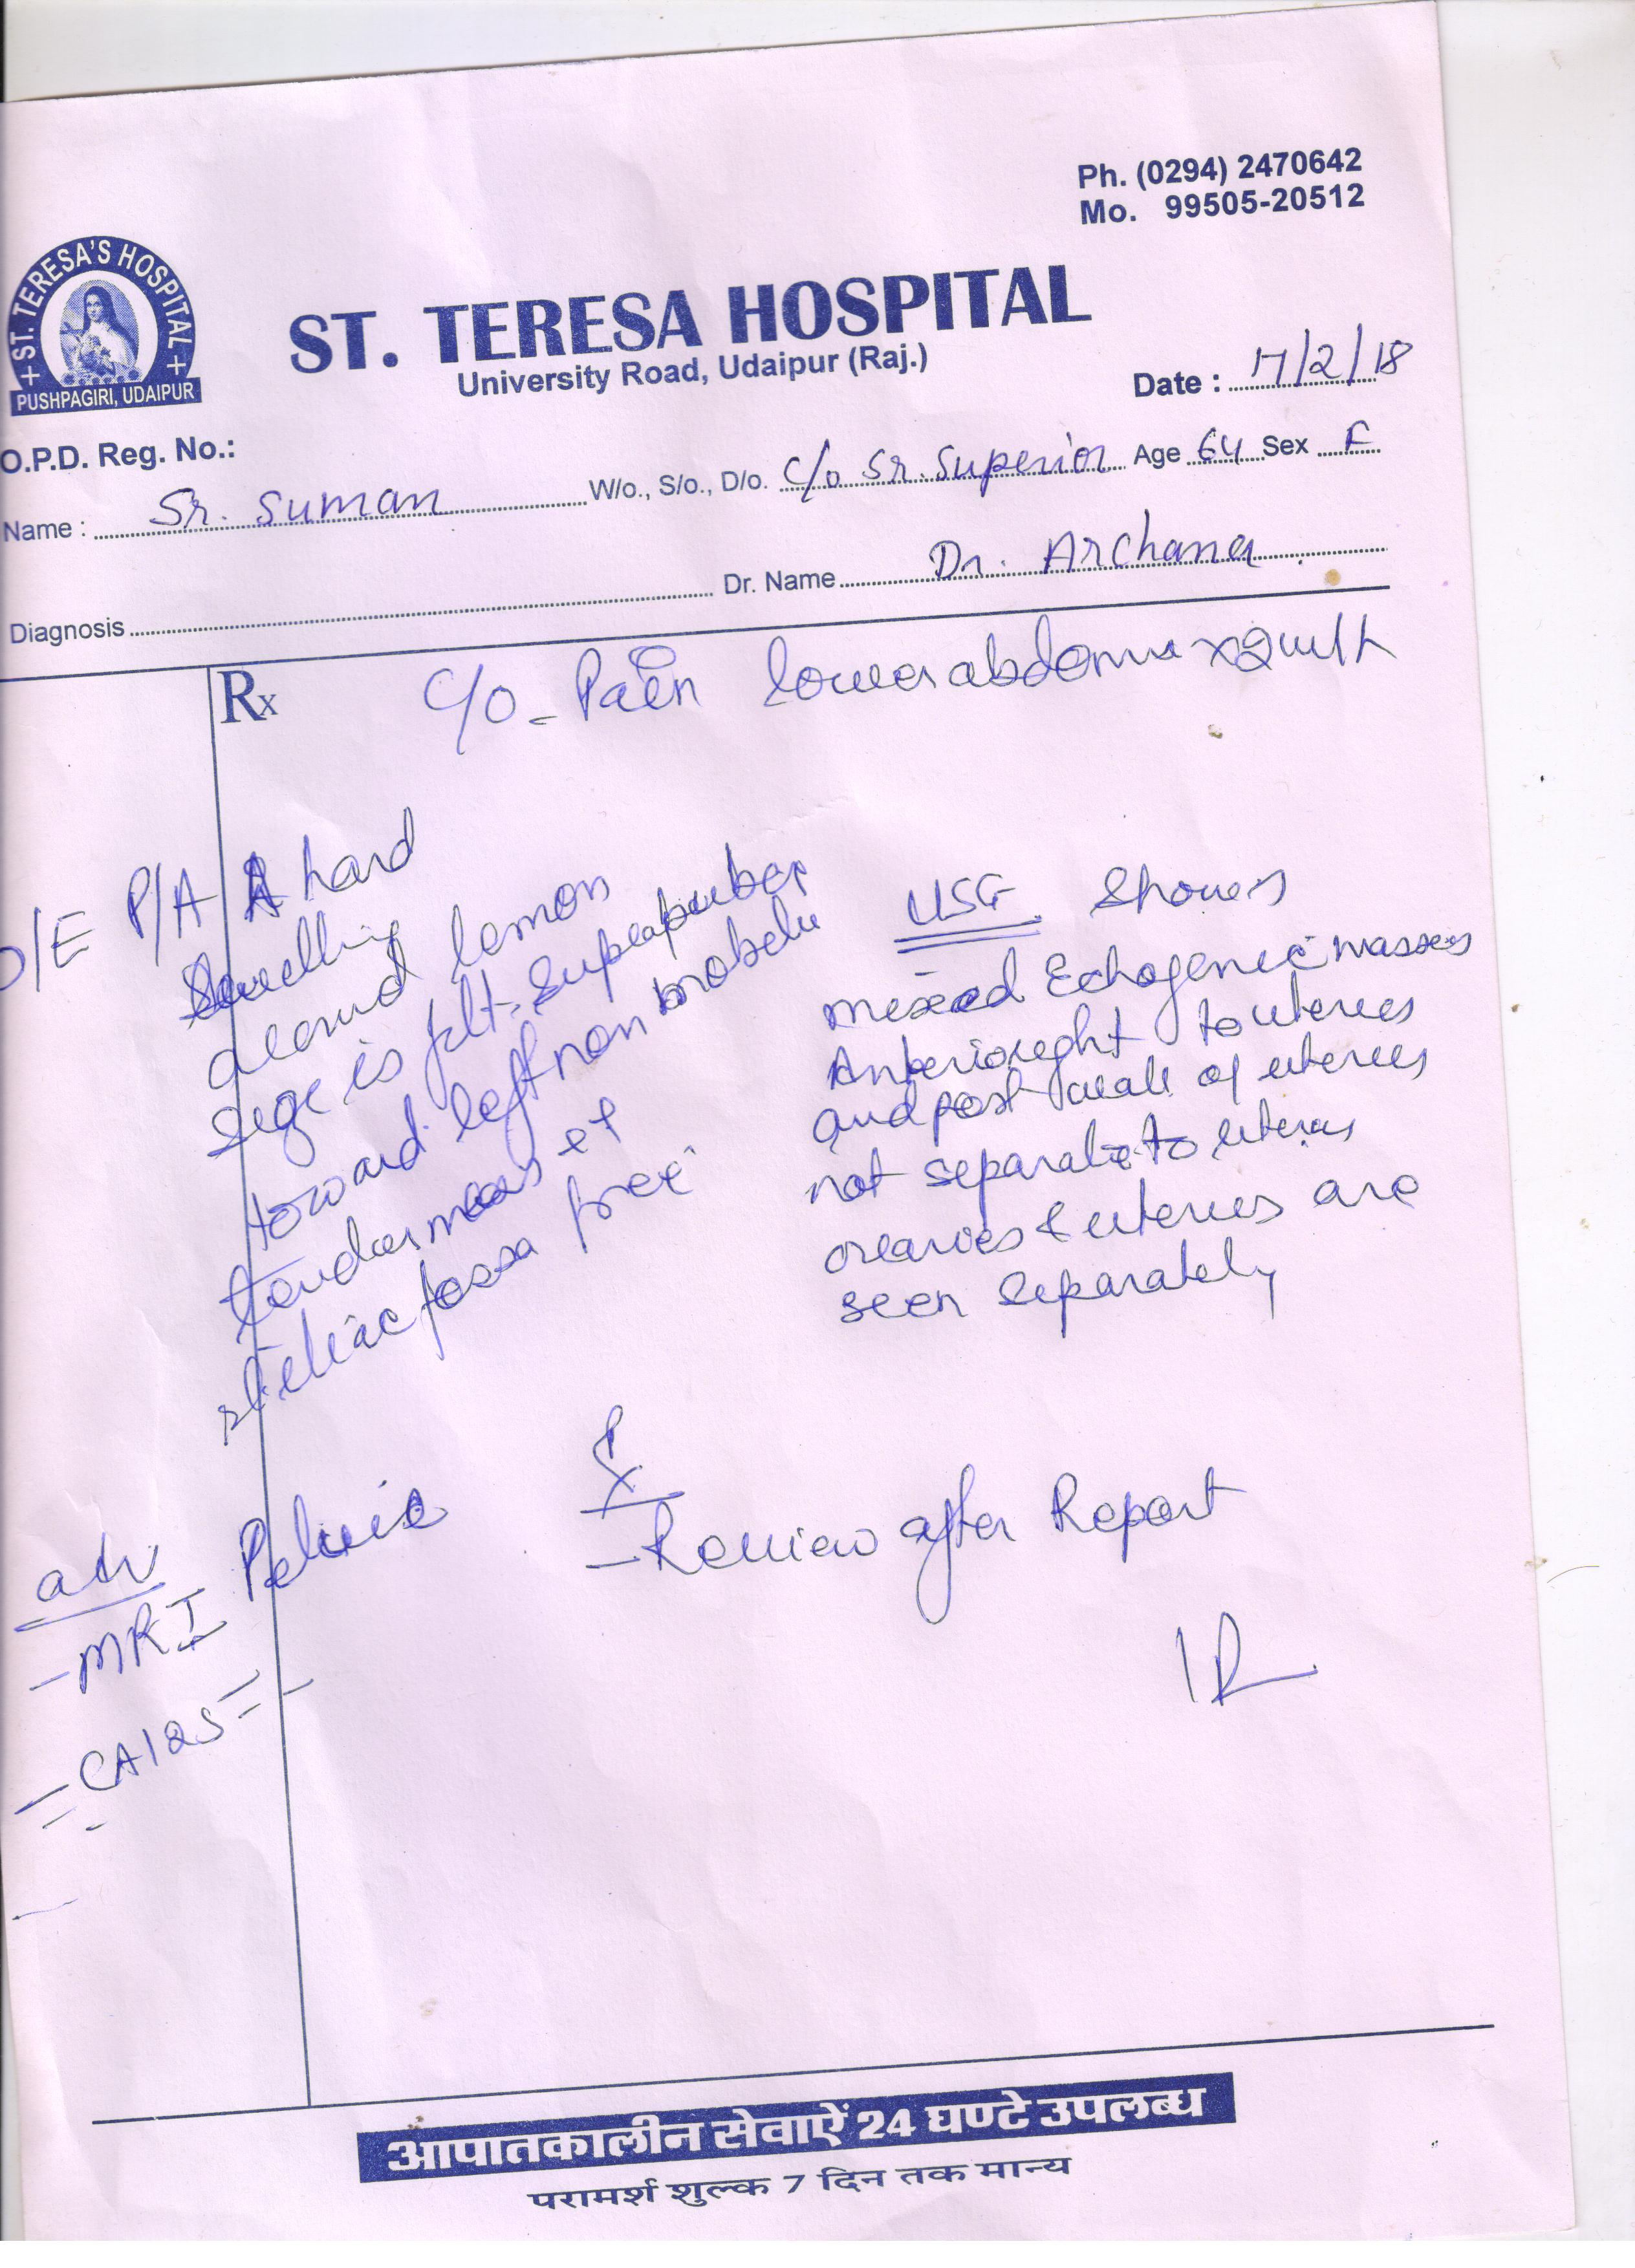 Ph. (0294) 2470642
Mo. 99505-20512
+ ST. TERESA'S HOSPITAL +
PUSHPAGIRI, UDAIPUR
ST. TERESA HOSPITAL
University Road, Udaipur (Raj.)
Date : 17/2/18
O.P.D. Reg. No.:
Name : Sr. Suman W/o., S/o., D/o. C/o Sr. Superior Age 64 Sex F
Diagnosis Dr. Name Dr. Archana
Rx C/o - Pain lower abdomen x 2
O/E P/A A hard
Swelling
around lemon
size is felt. Suprapubic
toward left non mobile
tenderness et
iliac fossa free
USG Shows
mixed Echogenic masses
Anterioright to uterus
and post wall of uterus
not separate to uterus
ovaries & uterus are
seen separately
adv
- MRI Pelvis
- CA125
Rx
- Review after Report
आपातकालीन सेवाऐं 24 घण्टे उपलब्ध
परामर्श शुल्क 7 दिन तक मान्य